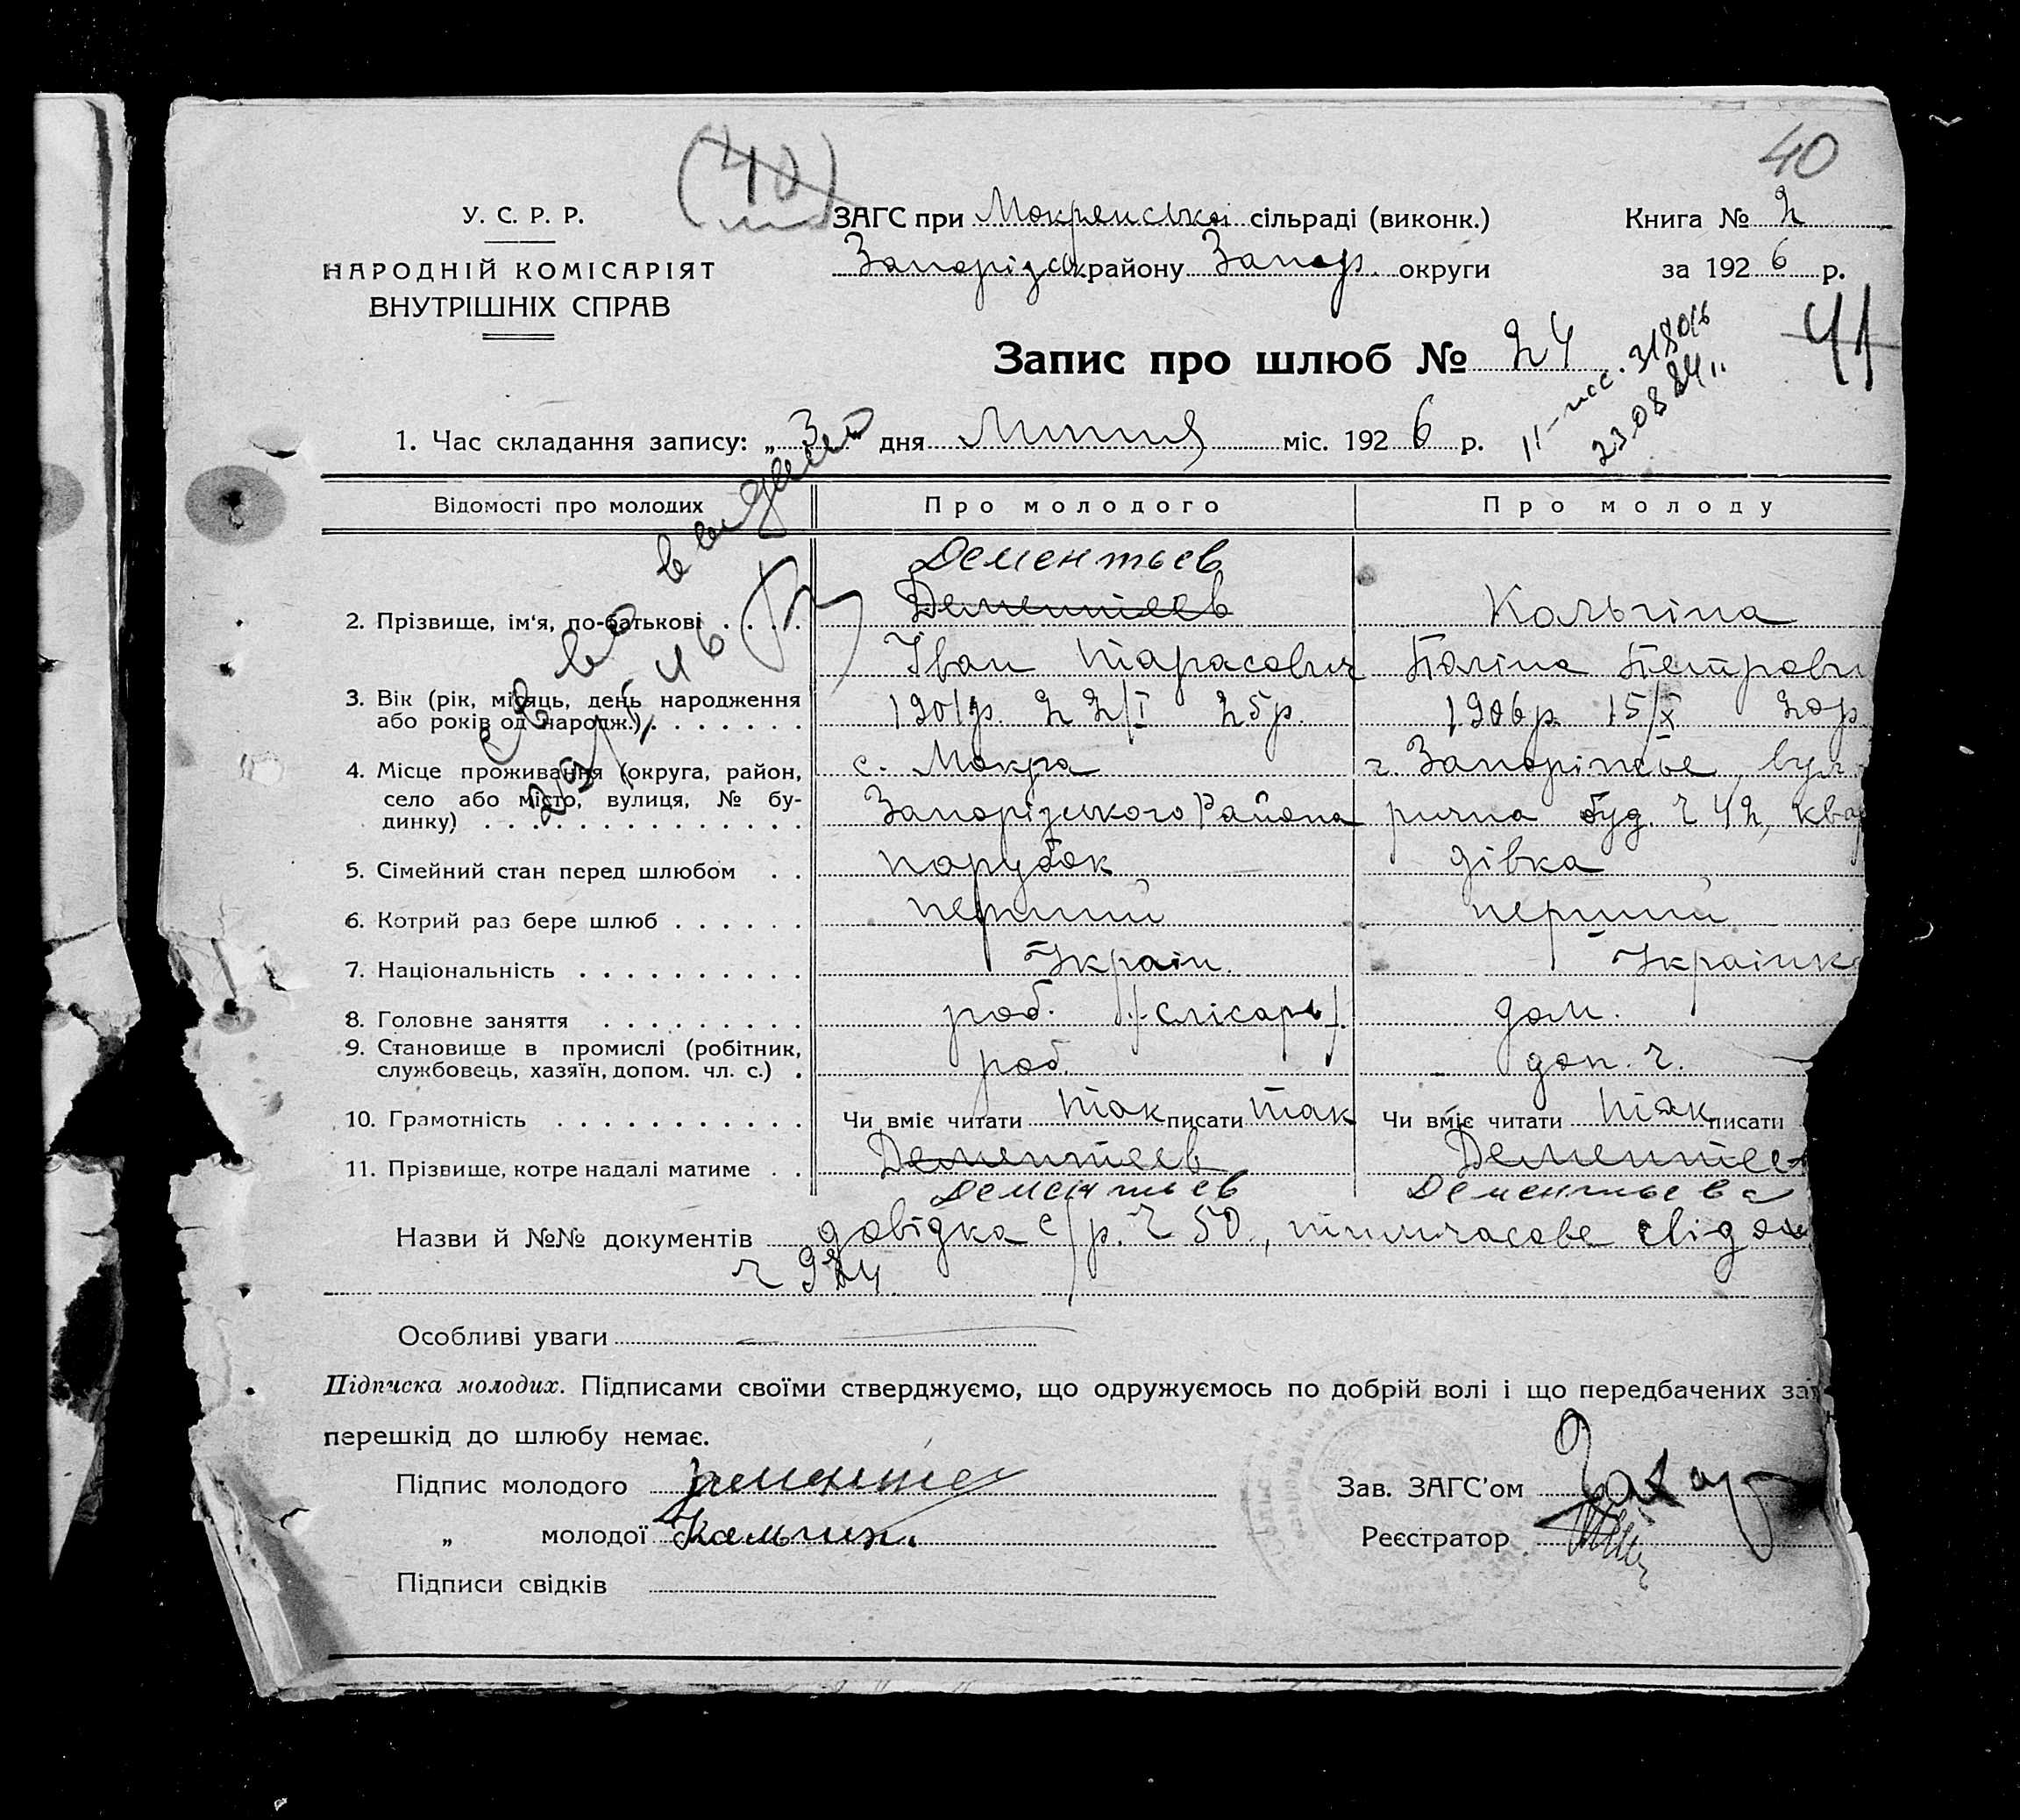 (40)
40
У. С. Р. Р.
НАРОДНІЙ КОМІСАРІЯТ
ВНУТРІШНІХ СПРАВ
ЗАГС при Мокрянській сільраді (виконк.)
Запорізьк. району Запор. округи
Книга № 2
за 1926 р.
41
Запис про шлюб № 24
23.08.84
1. Час складання запису: „3" дня Липня міс. 1926 р.
Відомості про молодих Про молодого Про молоду
Дементьев
2. Прізвище, ім'я, по-батькові . . . . Дементіеев Кольгіна
Іван Тарасович Поліна Петрови
3. Вік (рік, місяць, день народження
або років од народж.) . . . . . . . 1901р. 22/I 25р. 1906р. 15/X 20р.
4. Місце проживання (округа, район, с. Мокра г. Запоріжье, вул.
село або місто, вулиця, № бу-
динку) . . . . . . . . . . . . . . . Запорізького Района річна буд. ч 42, квар
5. Сімейний стан перед шлюбом . . порубок дівка
6. Котрий раз бере шлюб . . . . . . перший перший
7. Національність . . . . . . . . . . Україн. Українка
8. Головне заняття . . . . . . . . . роб. /слісарь/ дом.
9. Становище в промислі (робітник,
службовець, хазяїн, допом. чл. с.) . роб. доп. ч.
10. Грамотність . . . . . . . . . . . Чи вміє читати так писати так Чи вміє читати так писати
11. Прізвище, котре надалі матиме . . Дементеев Дементеев
Дементьев Дементьева
Назви й №№ документів довідка с/р. ч 50, тимчасове свідоц
ч 924
Особливі уваги
Підписка молодих. Підписами своїми стверджуємо, що одружуємось по добрій волі і що передбачених за
перешкід до шлюбу немає.
Підпис молодого Дементьев
„ молодої Кальгин.
Підписи свідків
Зав. ЗАГС'ом Захар
Реєстратор